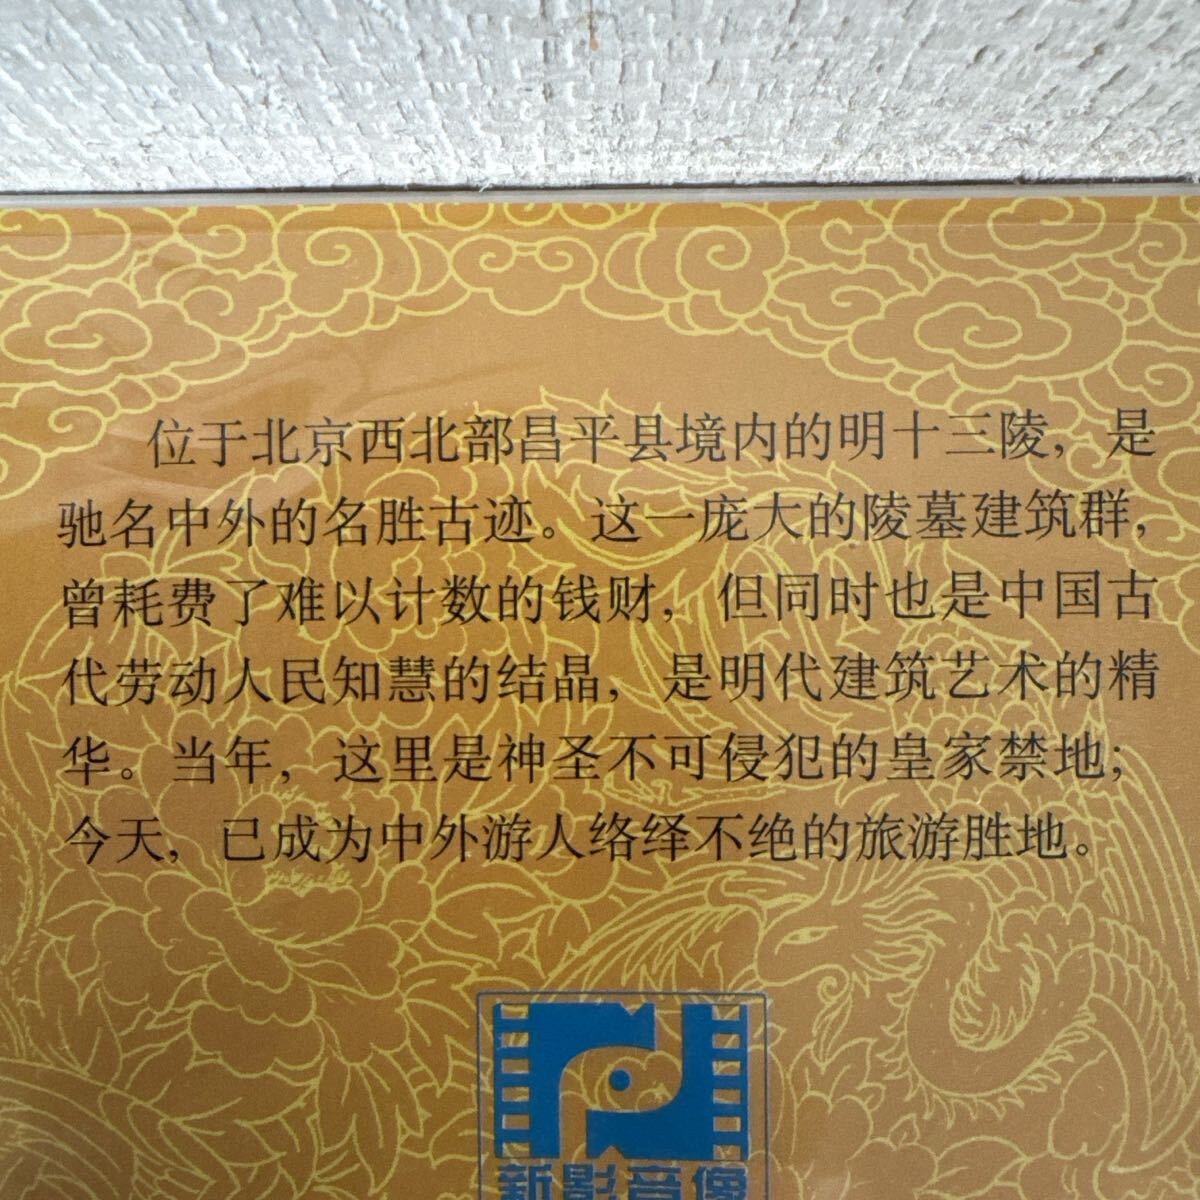 位于北京西北部昌平县境内的明十三陵，是
驰名中外的名胜古迹。这一庞大的陵墓建筑群，
曾耗费了难以计数的钱财，但同时也是中国古
代劳动人民知慧的结晶，是明代建筑艺术的精
华。当年，这里是神圣不可侵犯的皇家禁地；
今天，已成为中外游人络绎不绝的旅游胜地。
新影音像